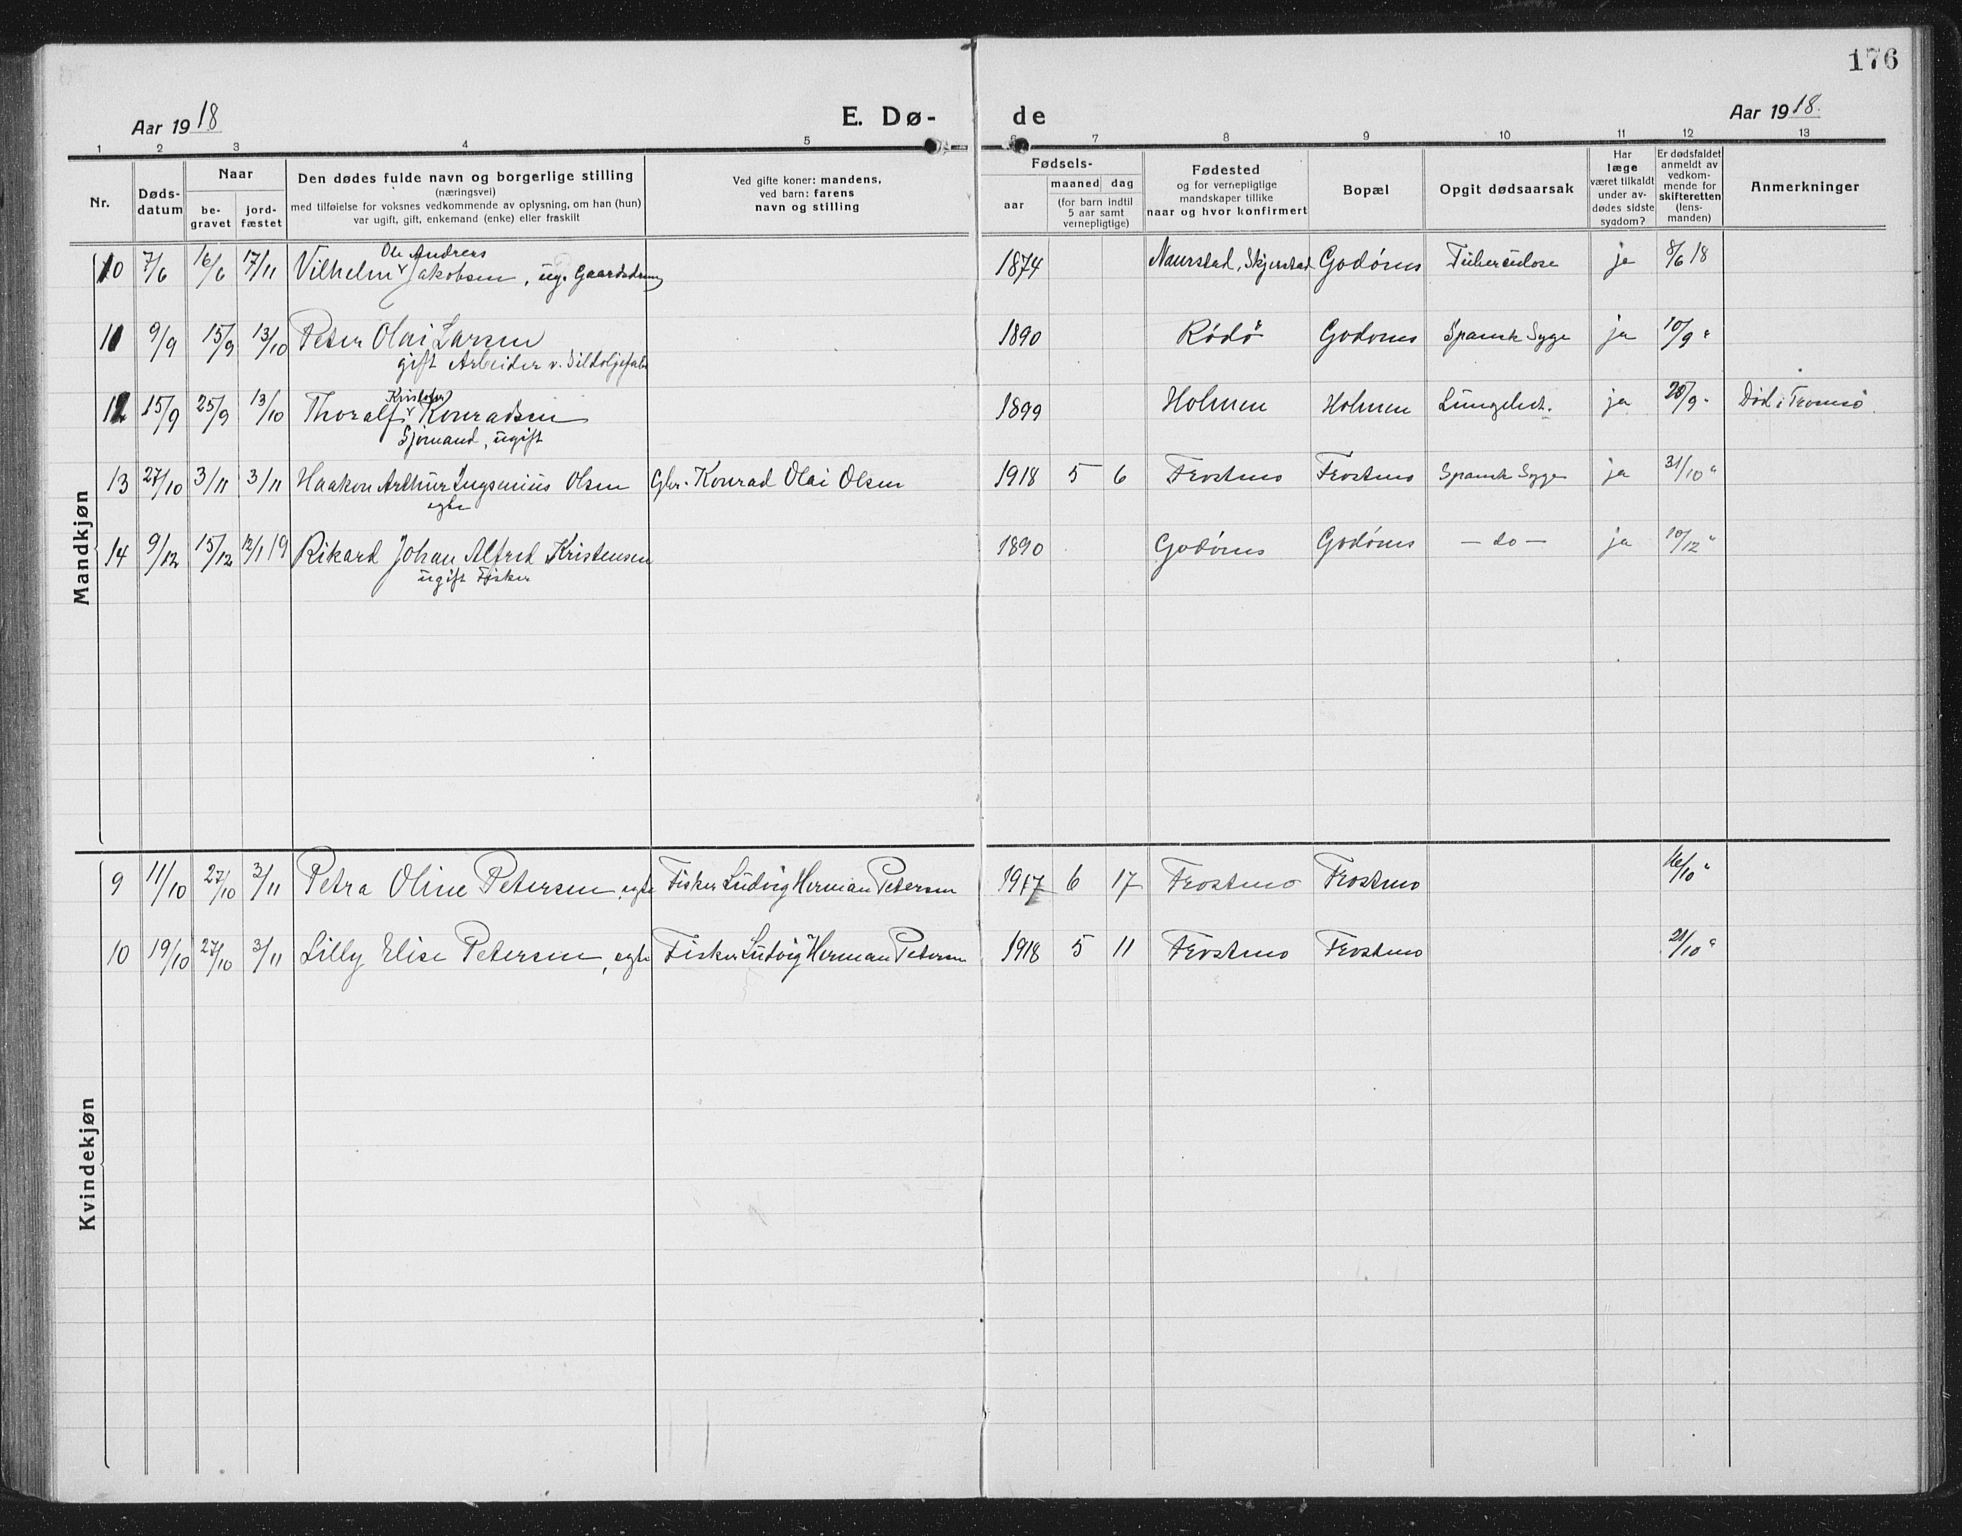 176
Aar 1918 E. Dø- de Aar 1918.
1 2 3 4 5 6 7 8 9 10 11 12 13
Nr.
Døds-
datum
Naar
be-
gravet
jord-
fæstet
Den dødes fulde navn og borgerlige stilling
(næringsvei)
med tilføielse for voksnes vedkommende av oplysning, om han (hun)
var ugift, gift, enkemand (enke) eller fraskilt
Ved gifte koner: mandens,
ved barn: farens
navn og stilling
Fødsels-
aar
maaned dag
(for barn indtil
5 aar samt
vernepligtige)
Fødested
og for vernepligtige
mandskaper tillike
naar og hvor konfirmert
Bopæl
Opgit dødsaarsak
Har
læge
været tilkaldt
under av-
dødes sidste
sygdom?
Er dødsfaldet
anmeldt av
vedkom-
mende for
skifteretten
(lens-
manden)
Anmerkninger
Mandkjøn
Ole Andreas
10 7/6 16/6 17/11 Vilhelm Jakobsen, ug. Gaardsdreng 1874 Naurstad, Skjerstad Godønes Tuberculose ja 8/6 18
11 9/9 15/9 13/10 Peter Olai Larsen 1890 Rødø Godønes Spansk Syge ja 10/9 "
gift Arbeider v. Sildoljefabr
Kristofer
12 15/9 25/9 13/10 Thoralf Konradsen 1899 Holmen Holmen Lungebet. ja 20/9 " Død i Tromsø
Sjømand, ugift
13 27/10 3/11 3/11 Haakon Arthur Ingenius Olsen Gbr. Konrad Olai Olsen 1918 5 6 Frostmo Frostmo Spansk Syge ja 31/10 "
egte
14 9/12 15/12 12/1 19 Rikard Johan Alfred Kristensen 1890 Godønes Godønes — do — ja 10/12 "
ugift Fisker
Kvindekjøn
9 11/10 27/10 3/11 Petra Oline Petersen, egte Fisker Ludvig Herman Petersen 1917 6 17 Frostmo Frostmo 16/10 "
10 19/10 27/10 3/11 Lilly Elise Petersen, egte Fisker Ludvig Herman Petersen 1918 5 11 Frostmo Frostmo 21/10 "